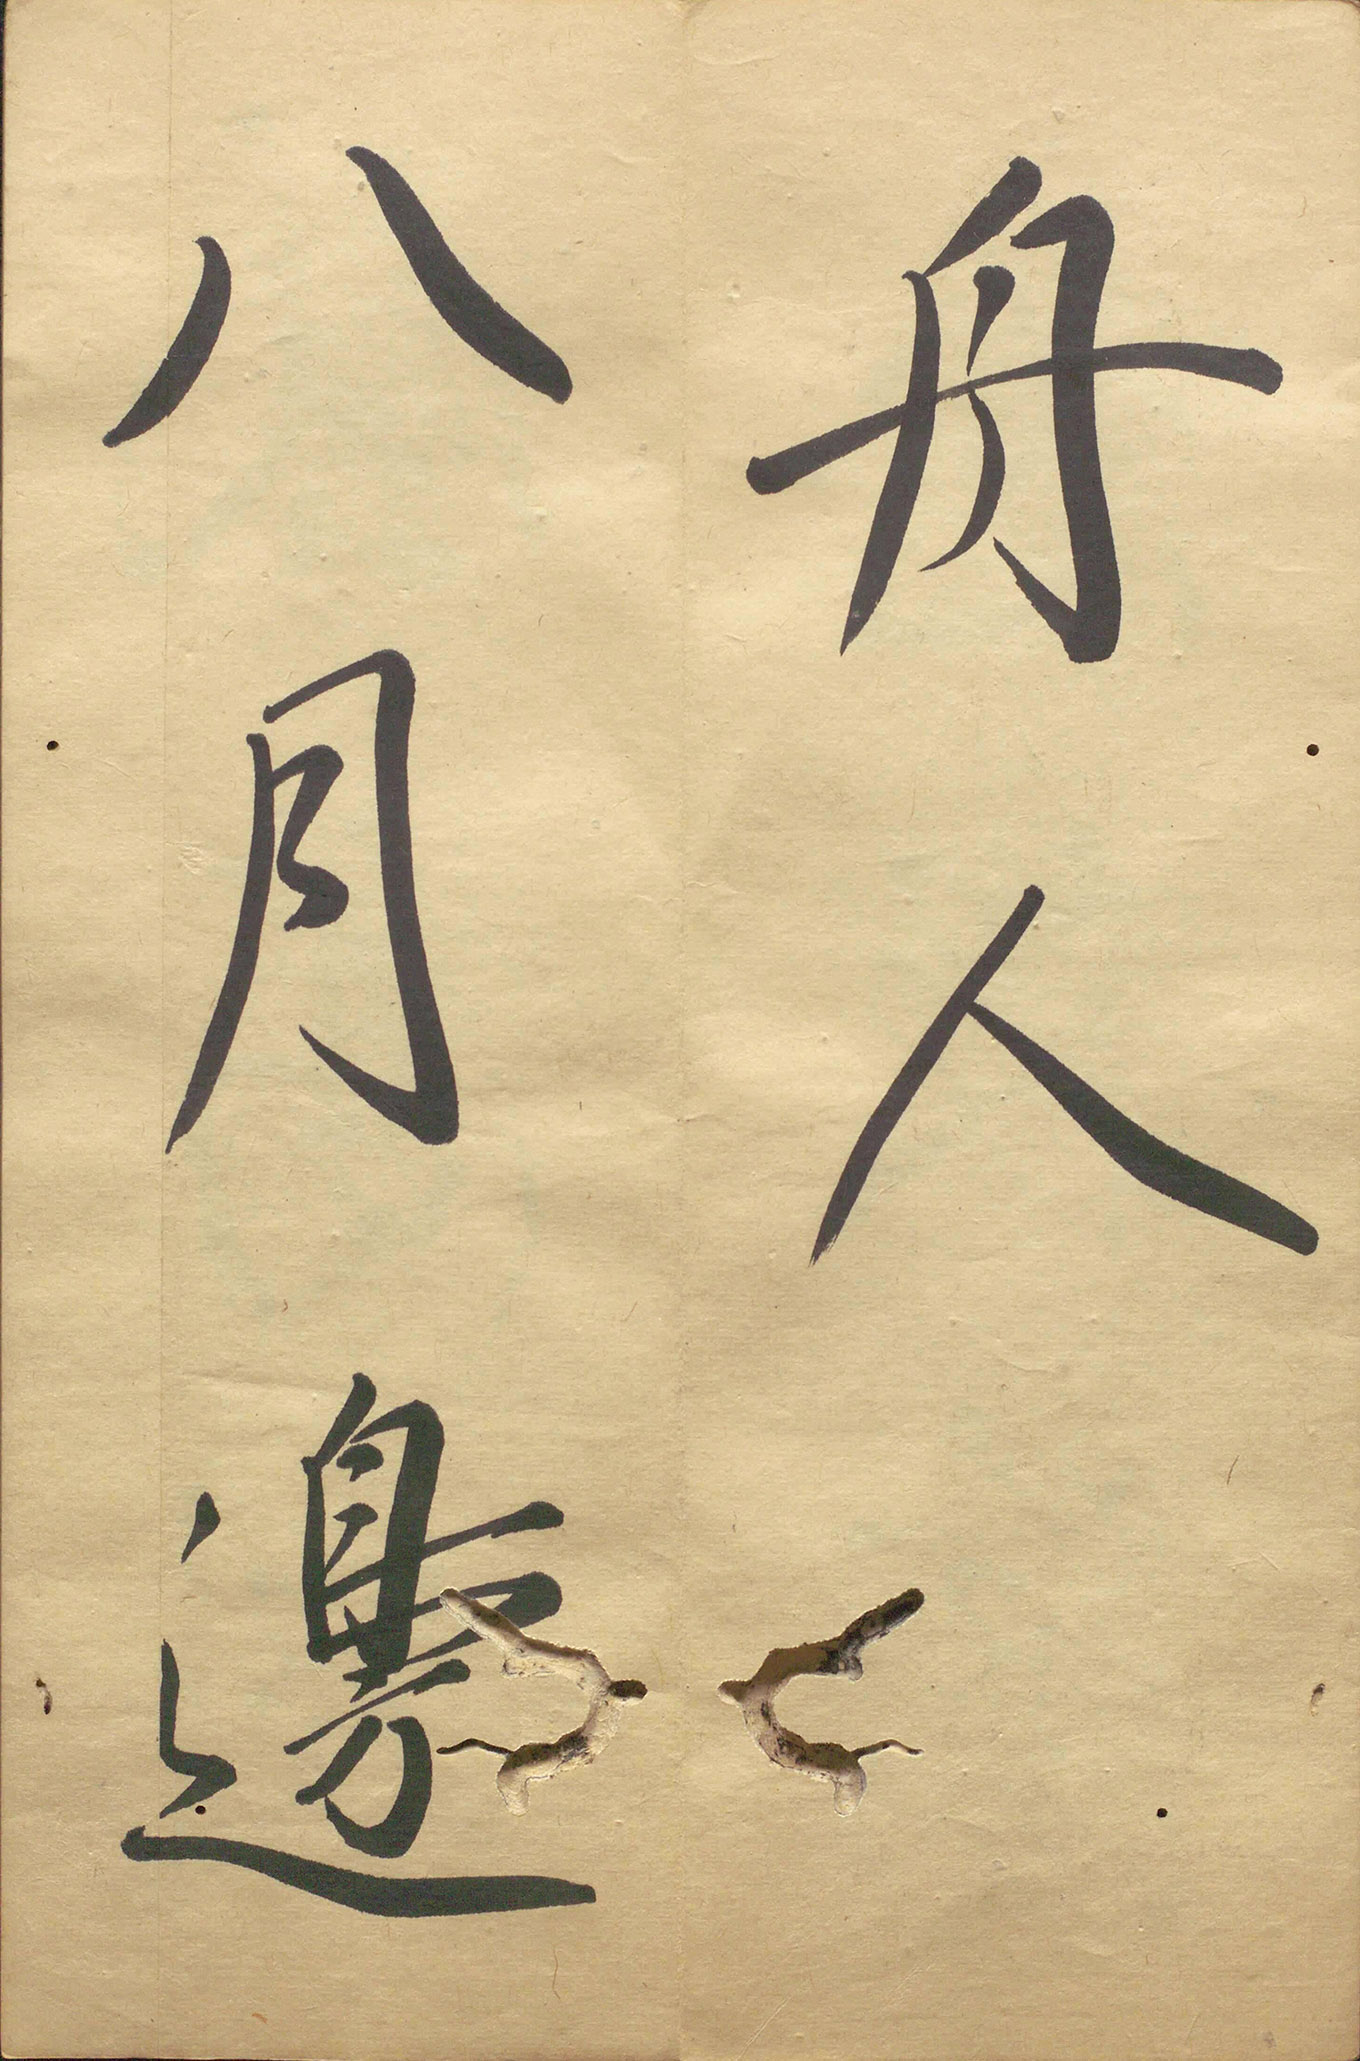 舟人
八月邊